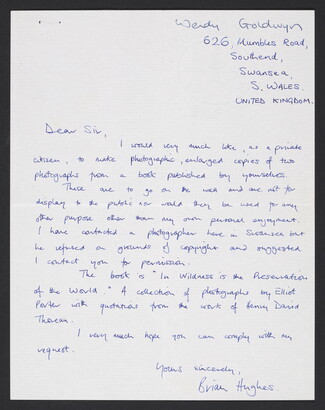 Wendy Goldwyn
626, Mumbles Road,
Southend,
Swansea,
S. WALES.
UNITED KINGDOM.
Dear Sir,
I would very much like, as a private
citizen, to make photographic, enlarged copies of two
photographs from a book published by yourselves.
These are to go on the wall and are not for
display to the public nor would they be used for any
other purpose other than my own personal enjoyment.
I have contacted a photographer here in Swansea but
he refused on grounds of copyright and suggested
I contact you for permission.
The book is "In Wildness is the Preservation
of the World" A collection of photographs by Elliot
Porter with quotations from the work of Henry David
Thoreau.
I very much hope you can comply with my
request.
Yours sincerely,
Brian Hughes.